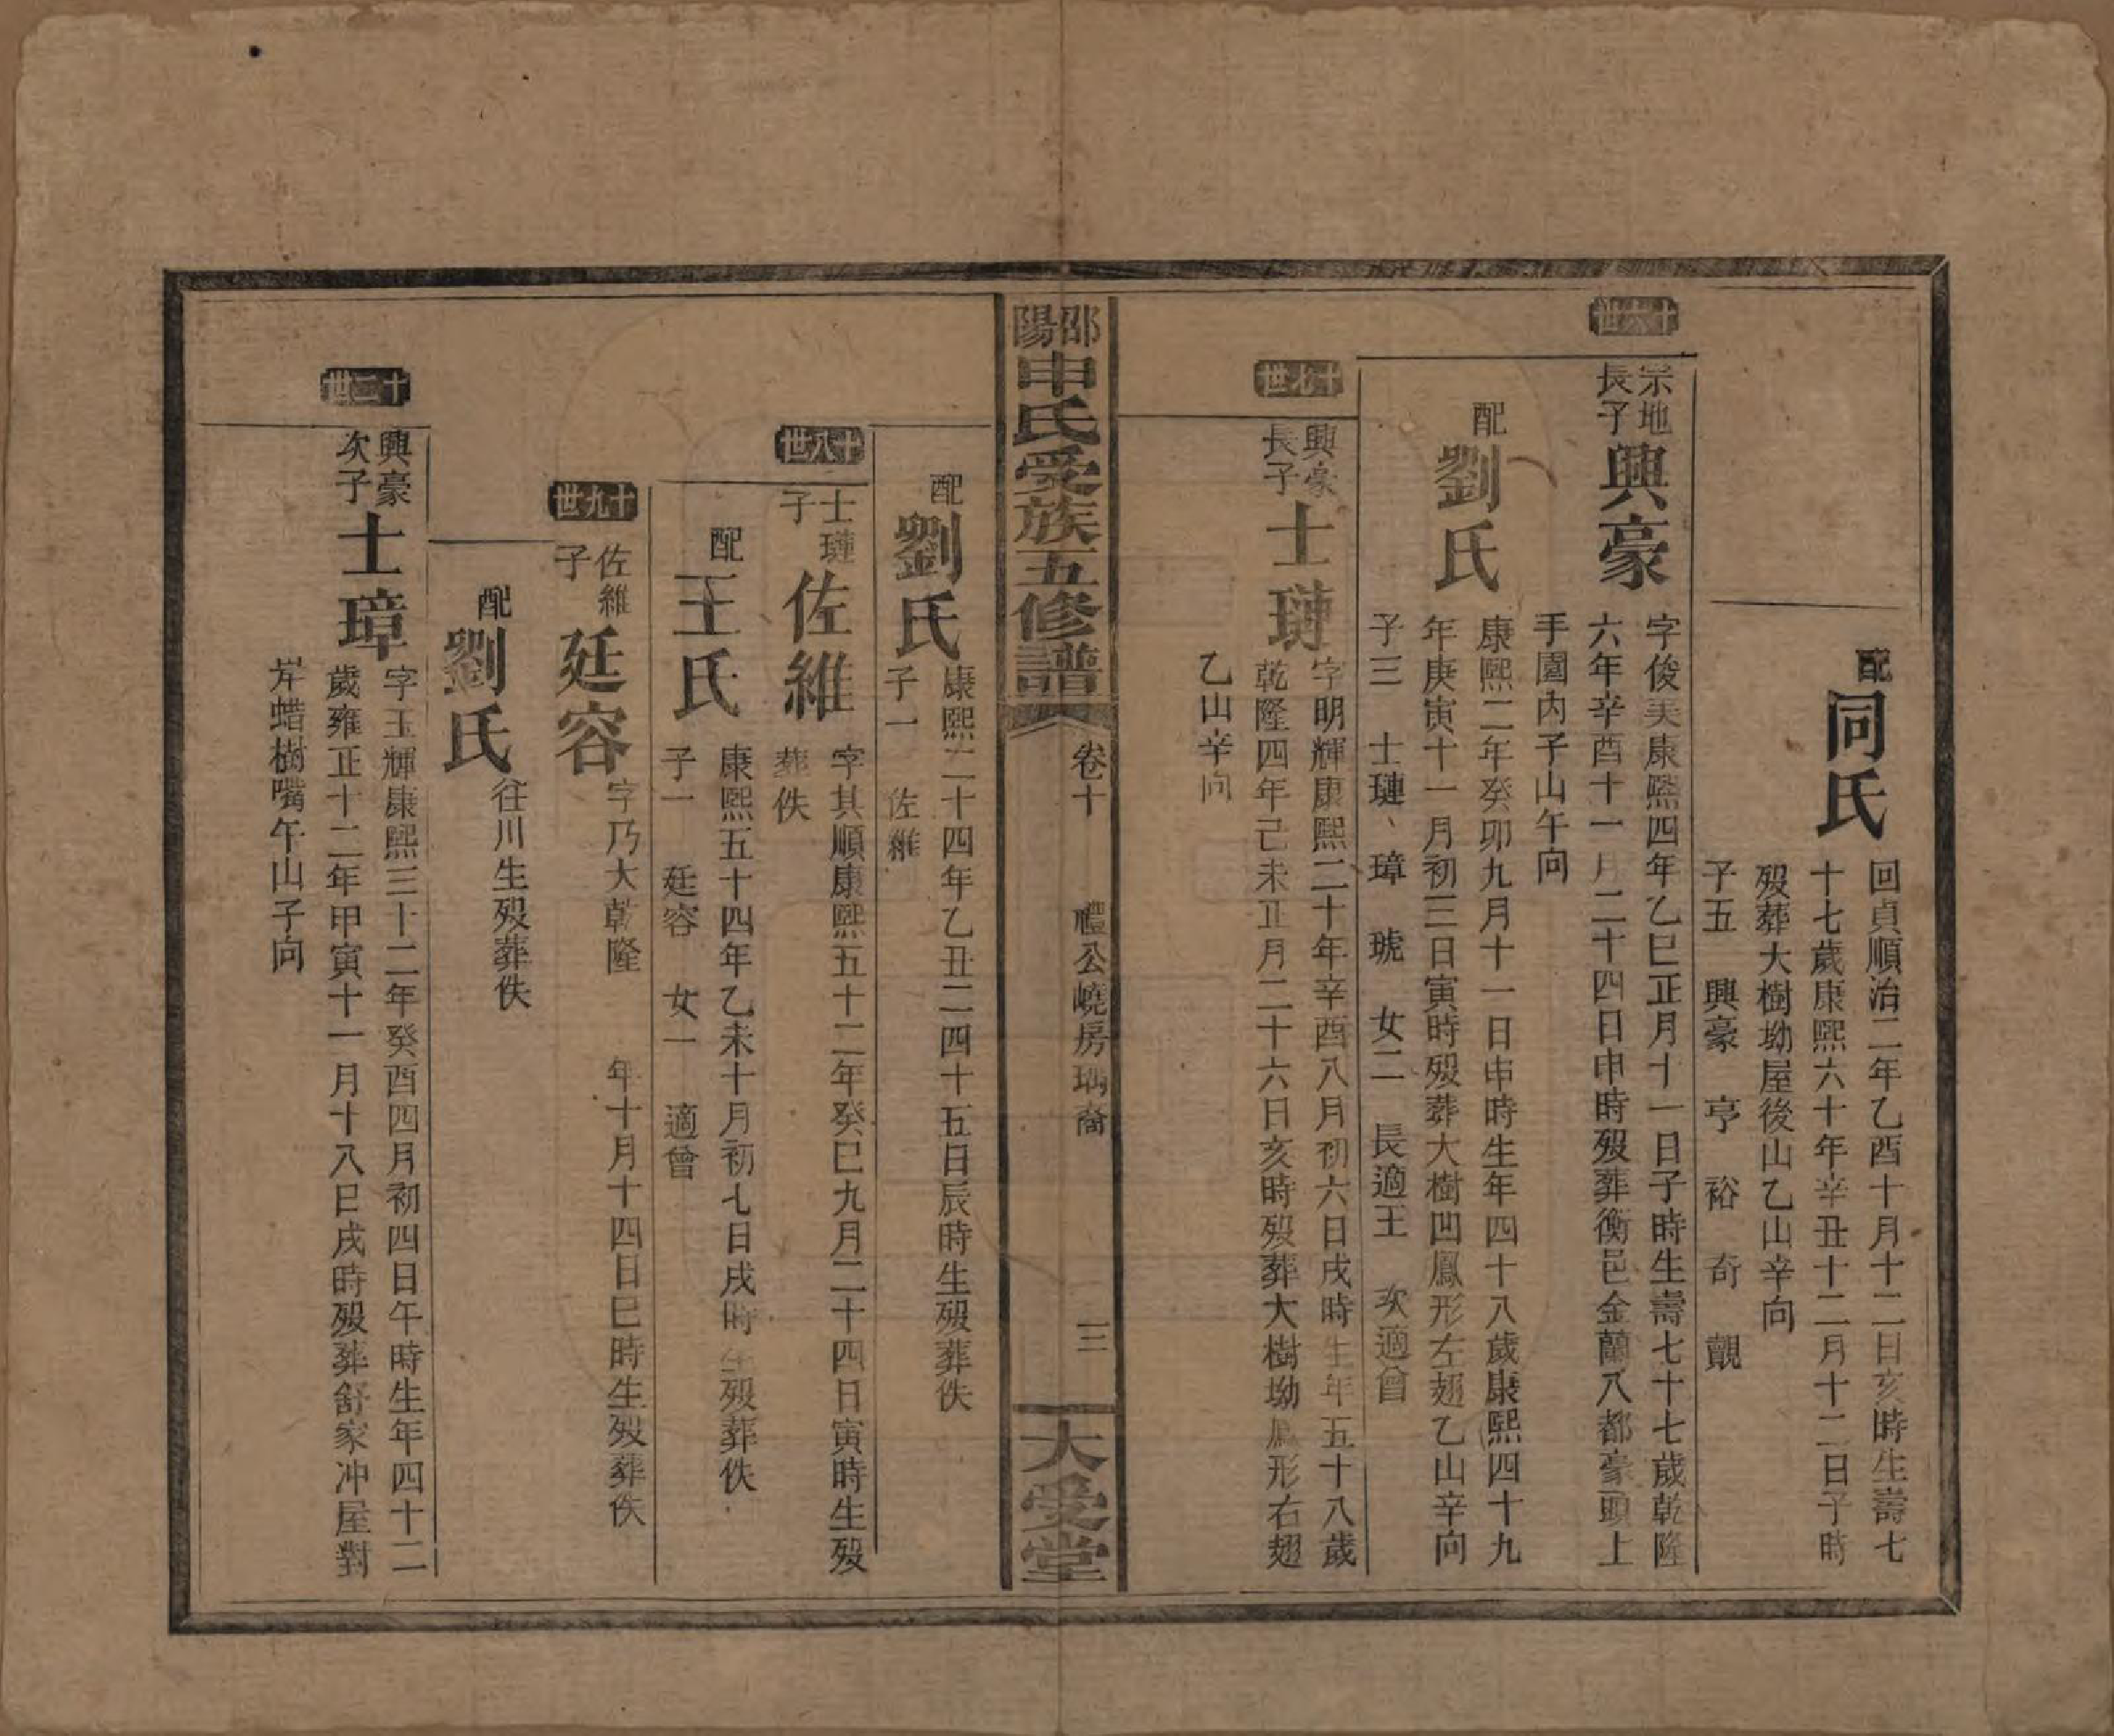 配
同氏
回貞順治二年乙酉十月十二日亥時生壽七
十七歲康熙六十年辛丑十二月十二日子時
歿葬大樹坳屋後山乙山辛向
子五 興豪 亨 裕 奇 觀
十六世
宗地
長子
興豪
字俊美康熙四年乙巳正月十一日子時生壽七十七歲乾隆
六年辛酉十一月二十四日申時歿葬衡邑金蘭八都豪頭上
手園內子山午向
配
劉氏
康熙二年癸卯九月十一日申時生年四十八歲康熙四十九
年庚寅十一月初三日寅時歿葬大樹凹鳳形左翅乙山辛向
子三 士璉、璋 琥 女二 長適王 次適曾
十七世
興豪
長子
士璉
字明輝康熙二十年辛酉八月初六日戌時生年五十八歲
乾隆四年己未正月二十六日亥時歿葬大樹坳鳳形右翅
乙山辛向
邵陽
申氏受族五修譜
卷十
禮公嶢房瑀裔
三
大受堂
配
劉氏
康熙二十四年乙丑二四十五日辰時生歿葬佚
子一 佐維
十八世
士璉
子
佐維
字其順康熙五十二年癸巳九月二十四日寅時生歿
葬佚
配
王氏
康熙五十四年乙未十月初七日戌時生歿葬佚
子一 廷容 女一 適曾
十九世
佐維
子
廷容
字乃大乾隆 年十月十四日巳時生歿葬佚
配
劉氏
往川生歿葬佚
十二世
興豪
次子
士璋
字玉輝康熙三十二年癸酉四月初四日午時生年四十二
歲雍正十二年甲寅十一月十八巳戌時歿葬舒家冲屋對
岸蜡樹嘴午山子向